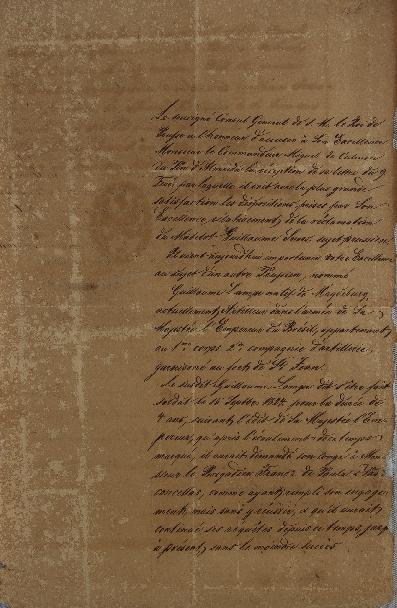 Le soussigné Consul General de S. M. le Roi de
Prusse a l'honneur d'accuser à Son Excellence
Monsieur le Commandeur Miguel de
la réception de sa lettre du 9
Juin par laquelle il voit avec la plus grande
satisfaction les dispositions prises par Son
Excellence, relativement, de la réclamation
du Matelot Guillaume sujet prussien.
Il vient aujourd'hui importuner votre Excellence
au sujet d'un autre Prussien, nommé
Guillaume Lampe natif de Magdeburg,
actuellement, dans l'armée de Sa
Majesté l'Empereur du Brésil, appartenant,
au 1er corps 2de compagnie d'artillerie,
garnisons au fort de St Jean.
Le susdit Guillaume Lampe dit s'être fait
soldat le 14 1824 pour la durée de
4 ans, suivant, l'édit de Sa Majesté l'Em-
pereur, qu'après l'écoulement de ce temps
marqué, il aurait demandé son congé à Mon-
sieur le Brigadier Franco de Paula e Vas-
concellos, comme ayant, rempli son engage-
ment, mais sans y réussir, & qu'il aurait,
continué ses requêtes depuis ce temps, jusqu'
à présent, sans le moindre succès